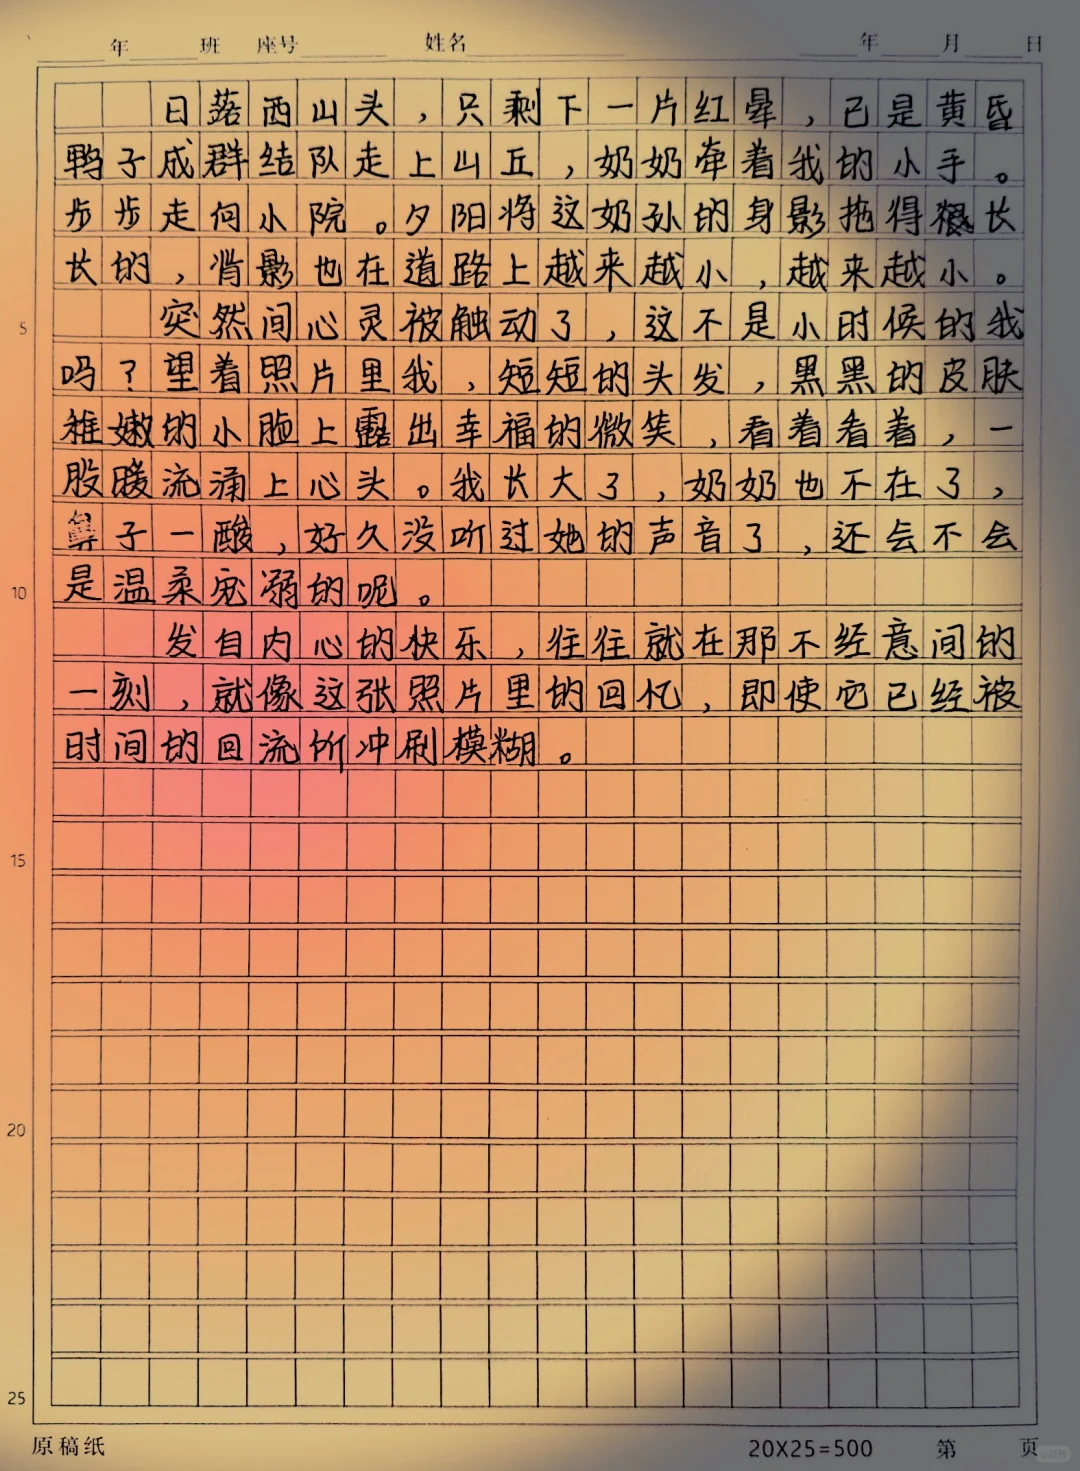 年 班 座号 姓名 年 月 日
日落西山头，只剩下一片红晕，已是黄昏
鸭子成群结队走上山丘，奶奶牵着我的小手。
步步走向小院。夕阳将这奶孙的身影拖得很长
长的，背影也在道路上越来越小，越来越小。
突然间心灵被触动了，这不是小时候的我
吗？望着照片里我，短短的头发，黑黑的皮肤
稚嫩的小脸上露出幸福的微笑，看着看着，一
股暖流涌上心头。我长大了，奶奶也不在了，
鼻子一酸，好久没听过她的声音了，还会不会
是温柔宠溺的呢。
发自内心的快乐，往往就在那不经意间的
一刻，就像这张照片里的回忆，即使它已经被
时间的回流所冲刷模糊。
5
10
15
20
25
原稿纸 20X25=500 第 页
小红书